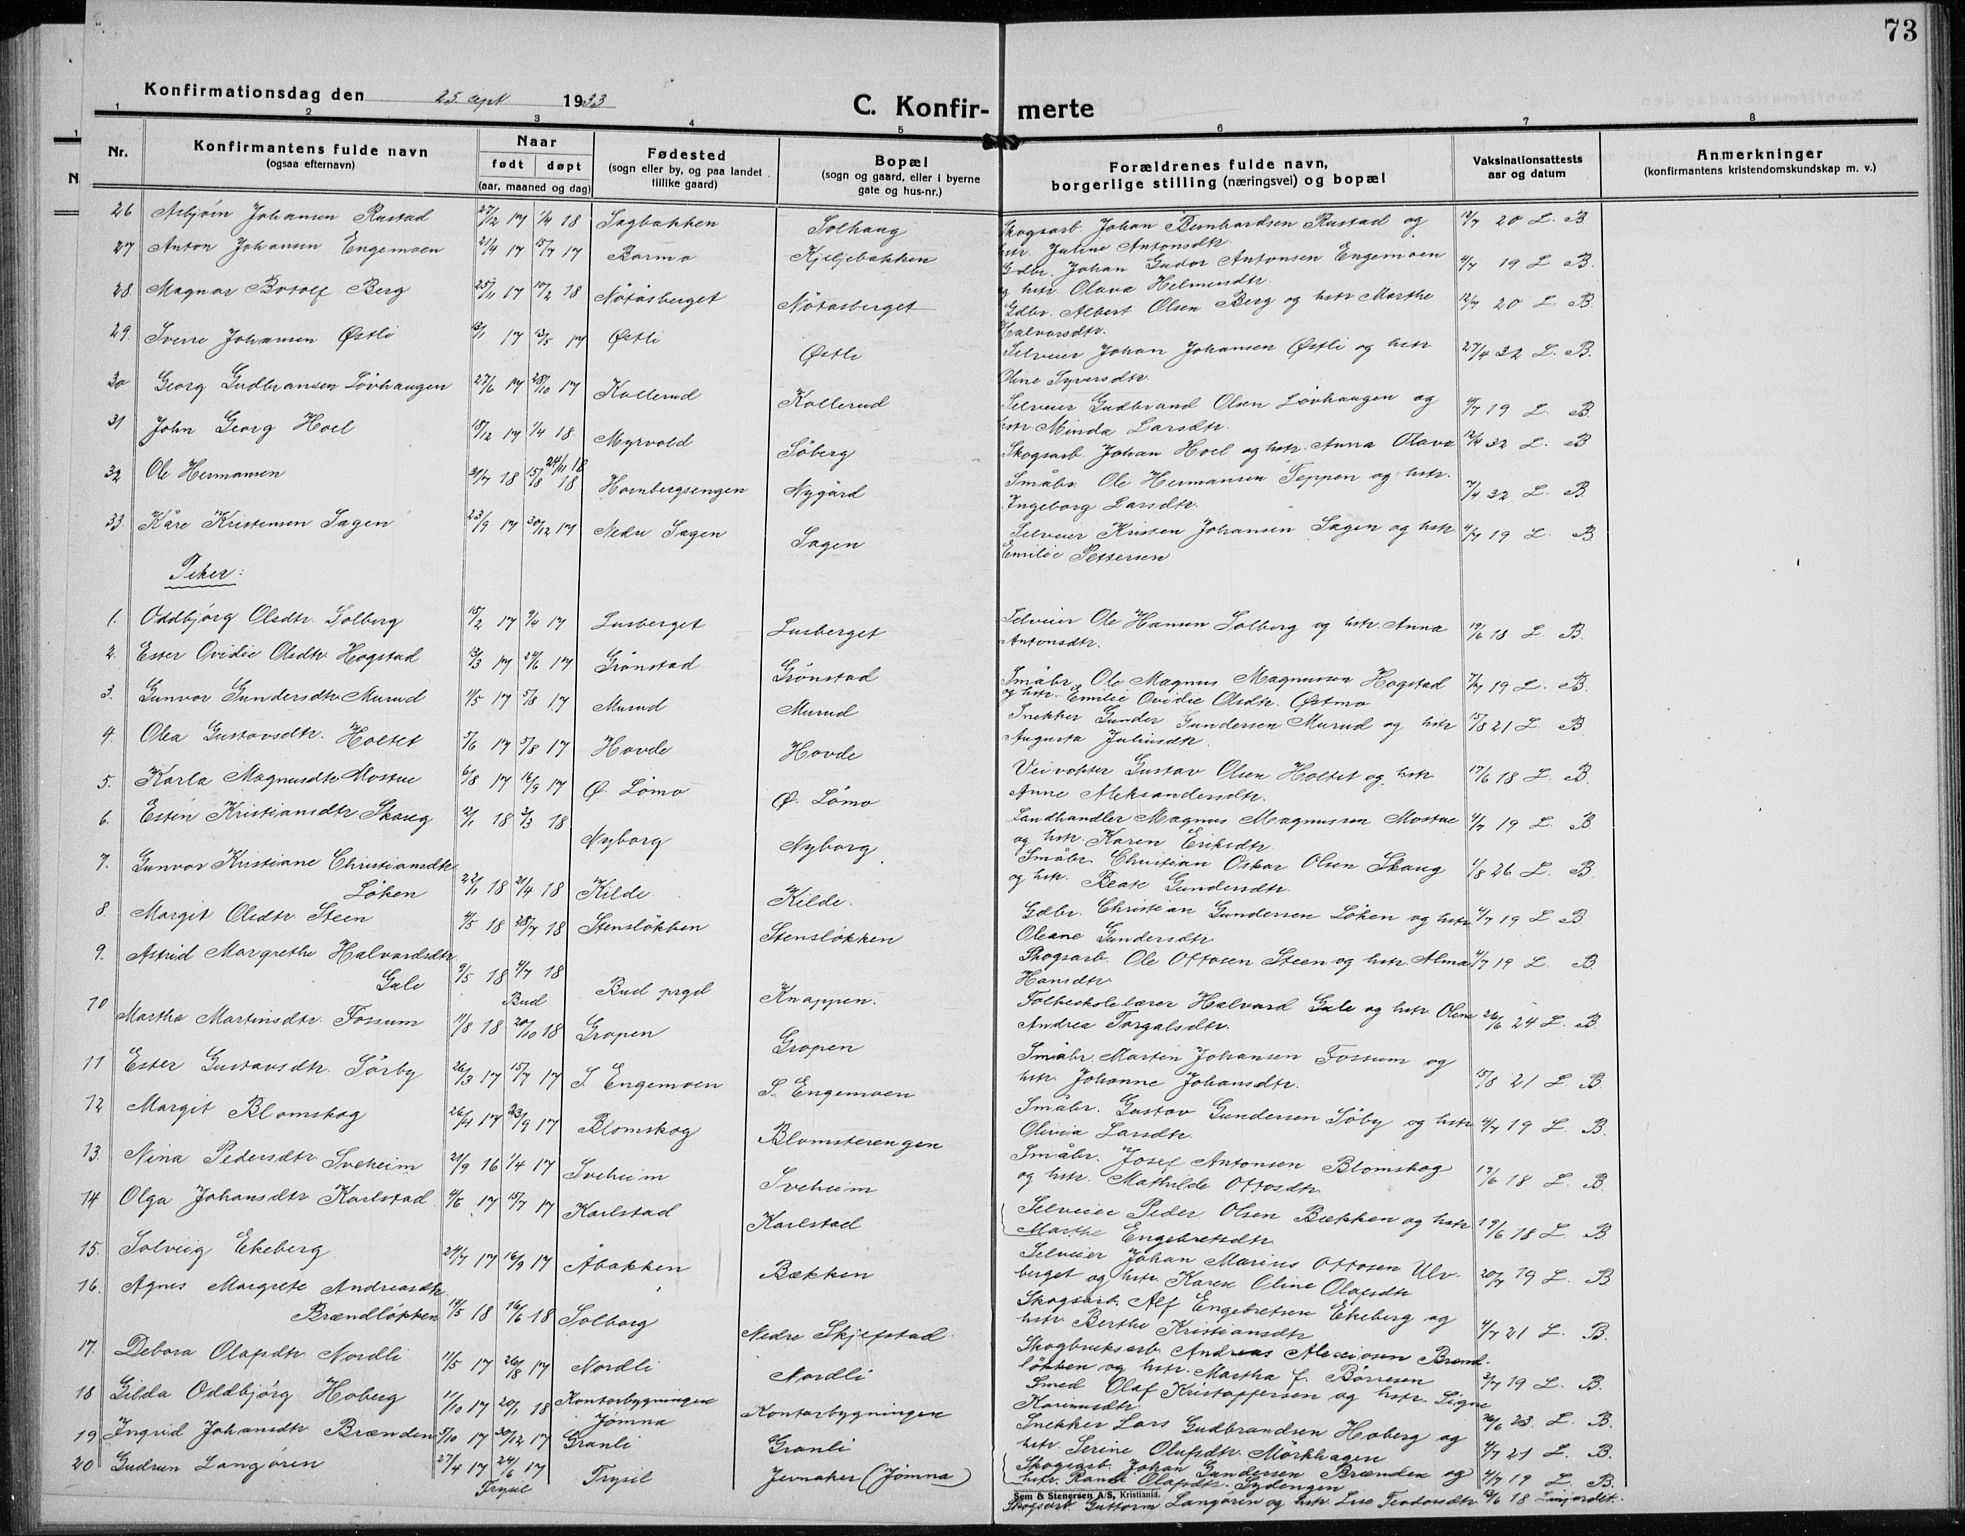 73
Konfirmationsdag den 25 sept 1933
C. Konfirmerte
1 2 3 4 5 6 7 8
Nr.
Konfirmantens fulde navn
(ogsaa efternavn)
Naar
født døpt
(aar, maaned og dag)
Fødested
(sogn eller by, og paa landet
tillike gaard)
Bopæl
(sogn og gaard, eller i byerne
gate og hus-nr.)
Forældrenes fulde navn,
borgerlige stilling (næringsvei) og bopæl
Vaksinationsattests
aar og datum
Anmerkninger
(konfirmantens kristendomskundskap m. v.)
26 Asbjörn Johansen Rustad 27/2 17 1/4 18 Sagbakken Solhaug Skogsarb. Johan Bernhardsen Rustad og 12/7 20 L. B
hstr Juline Antonsdtr.
27 Anton Johansen Engemoen 21/4 17 15/7 17 Barmo Kjeljebakken Gdbr. Johan Gudor Antonsen Engemoen 4/7 19 L B.
og hstr. Olava Helmersdtr.
28. Magnar Botolf Berg 25/11 17 10/2 18 Nötåsberget Nötåsberget Gdbr. Albert Olsen Berg og hstr Marthe 12/7 20 L. B.
Halvorsdtr.
29. Sverre Johansen Østli 13/1 17 13/5 17 Østli Østli Selveier Johan Johansen Østli og hstr 27/4 32 L. B.
Oline Syversdtr.
30 Georg Gudbransen Lövhaugen 27/6 17 28/10 17 Kollerud Kollerud Selveier Gudbrand Olsen Lövhaugen og 4/7 19 L. B.
hstr Minda Larsdtr.
31 John Georg Hoel 18/12 17 1/4 18 Myrvold Söberg Skogsarb. Johan Hoel og hstr. Anna Olava 12/4 32 L. B
32 Ole Hermansen 31/7 18 15/8 18 24/11 18 Hornbergsengen Nygård Småbr. Ole Hermansen Teppen og hstr. 7/4 32 L. B.
Ingeborg Larsdtr.
33 Kåre Kristensen Sagen 23/9 17 30/12 17 Nedre Sagen Sagen Selveier Kristen Johansen Sagen og hstr 4/7 19 L. B.
Emilie Pettersen
Piker:
1. Oddbjörg Olsdtr. Solberg 15/2 17 9/4 17 Lusberget Lusberget Selveier Ole Hansen Solberg og hstr. Anna 19/6 18 L. B.
Antonsdtr.
2. Ester Ovidie Olsdtr. Hogstad 13/3 17 24/6 17 Grönstad Grönstad Småbr. Ole Magnus Magnussen Hogstad 7/7 19 L. B.
og hstr. Emilie Ovidie Olsdtr. Østmo
3. Gunvor Gundersdtr. Murud 11/5 17 5/8 17 Murud Murud Snekker Gunder Gundersen Murud og hstr 15/8 21 L. B
Augusta Juliusdtr.
4. Olea Gustavsdtr. Holtet 5/6 17 5/8 17 Hovde Hovde Veivokter Gustav Olsen Holtet og hstr 17/6 18 L. B.
Anne Aleksandersdtr.
5. Karla Magnusdtr Mostue 6/8 17 16/9 17 Ø. Lömo Ø. Lömo Landhandler Magnus Magnussen Mostue 4/7 19 L. B.
og hstr. Karen Eriksdtr.
6. Esten Kristiansdtr Skaug 12/1 18 3/3 18 Nyborg Nyborg. Småbr. Christian Oskar Olsen Skaug 1/8 26 L. B.
og hstr. Beate Gundersdtr.
7. Gunvor Kristiane Christiansdtr.
Löken 22/1 18 21/4 18 Kilde. Kilde. Gdbr. Christian Gundersen Löken og hstr 4/7 19 L B
Oleane Gundersdtr.
8. Margit Olsdtr. Steen 4/5 18 28/7 18 Stenslökken Stenslökken Skogsarb. Ole Ottosen Steen og hstr. Alma 4/7 19 L. B.
Hansdtr.
9. Astrid Margrethe Halvardsdtr
Gule 9/5 18 4/7 18 Bud Bud prgd Knappen. Folkeskolelærer Halvard Gule og hstr. Oline 26/6 24 L. B.
Andrea Torgalsdtr.
10 Martha Martinsdtr. Fossum 11/8 18 20/10 18 Gropen Gropen Småbr. Martin Johansen Fossum og 15/8 21 L B.
hstr. Johanne Johansdtr.
11 Ester Gustavsdtr. Sörby 26/3 17 15/7 17 S. Engemoen S. Engemoen Småbr. Gustav Gundersen Söby og hstr 4/7 19 L. B.
Olivia Larsdtr.
12 Margit Blomskog 26/4 17 23/9 17 Blomskog Blomsterengen Småbr. Josef Antonsen Blomskog 19/6 18 L. B.
og hstr. Mathilde Ottosdtr.
13. Nina Pedersdtr Sveheim 21/9 16 1/4 17 Sveheim Sveheim Selveier Peder Olsen Bækken og hstr 19/6 18 L. B
Marthe Engebretsdtr.
14 Olga Johansdtr Karlstad 4/5 17 15/7 17 Karlstad Karlstad Selveier Johan Marius Ottosen Ulv- 20/7 19 L. B
berget og hstr. Karen Oline Olafsdtr
15. Solveig Ekeberg 24/7 17 16/9 17 Åbakken Bækken Skogsarb. Alf Engebretsen Ekeberg og 4/7 21 L. B.
hstr Berthe Kristiansdtr
16. Agnes Margrete Andreasdtr.
Brændlökken 19/5 18 16/6 18 Solborg Nedre Skjefstad Skogbruksarb. Andreas Alexiosen Brænd-
lökken og hstr. Martha f. Börresen 3/7 19 L. B.
17. Debora Olafsdtr Nordli 11/5 17 26/8 17 Nordli Nordli Smed Olaf Kristoffersen og hstr. Signe
Karinusdtr 26/6 23 L. B.
18 Gilda Oddbjörg Hoberg 11/10 17 20/1 18 Kontorbygningen Jömna Kontorbygningen Snekker Lars Gudbrandsen Hoberg og
hstr. Serine Olufsdtr. Mörkhagen 4/7 21 L. B.
19 Ingrid Johansdtr Brænden 5/10 17 30/12 17 Granli Granli Skogsarb. Johan Gundersen Brænden og
hstr. Randi Olafsdtr. Sydengen 4/7 19 L. B.
20 Gudrun Langören 27/4 17 24/6 17 Trysil Trysil Jernaker (Jömna)
Sem & Stenersen A/S, Kristiania.
Skogsarb. Guttorm Langören og hstr Lise Teodorsdtr 12/6 18 Linjordet.